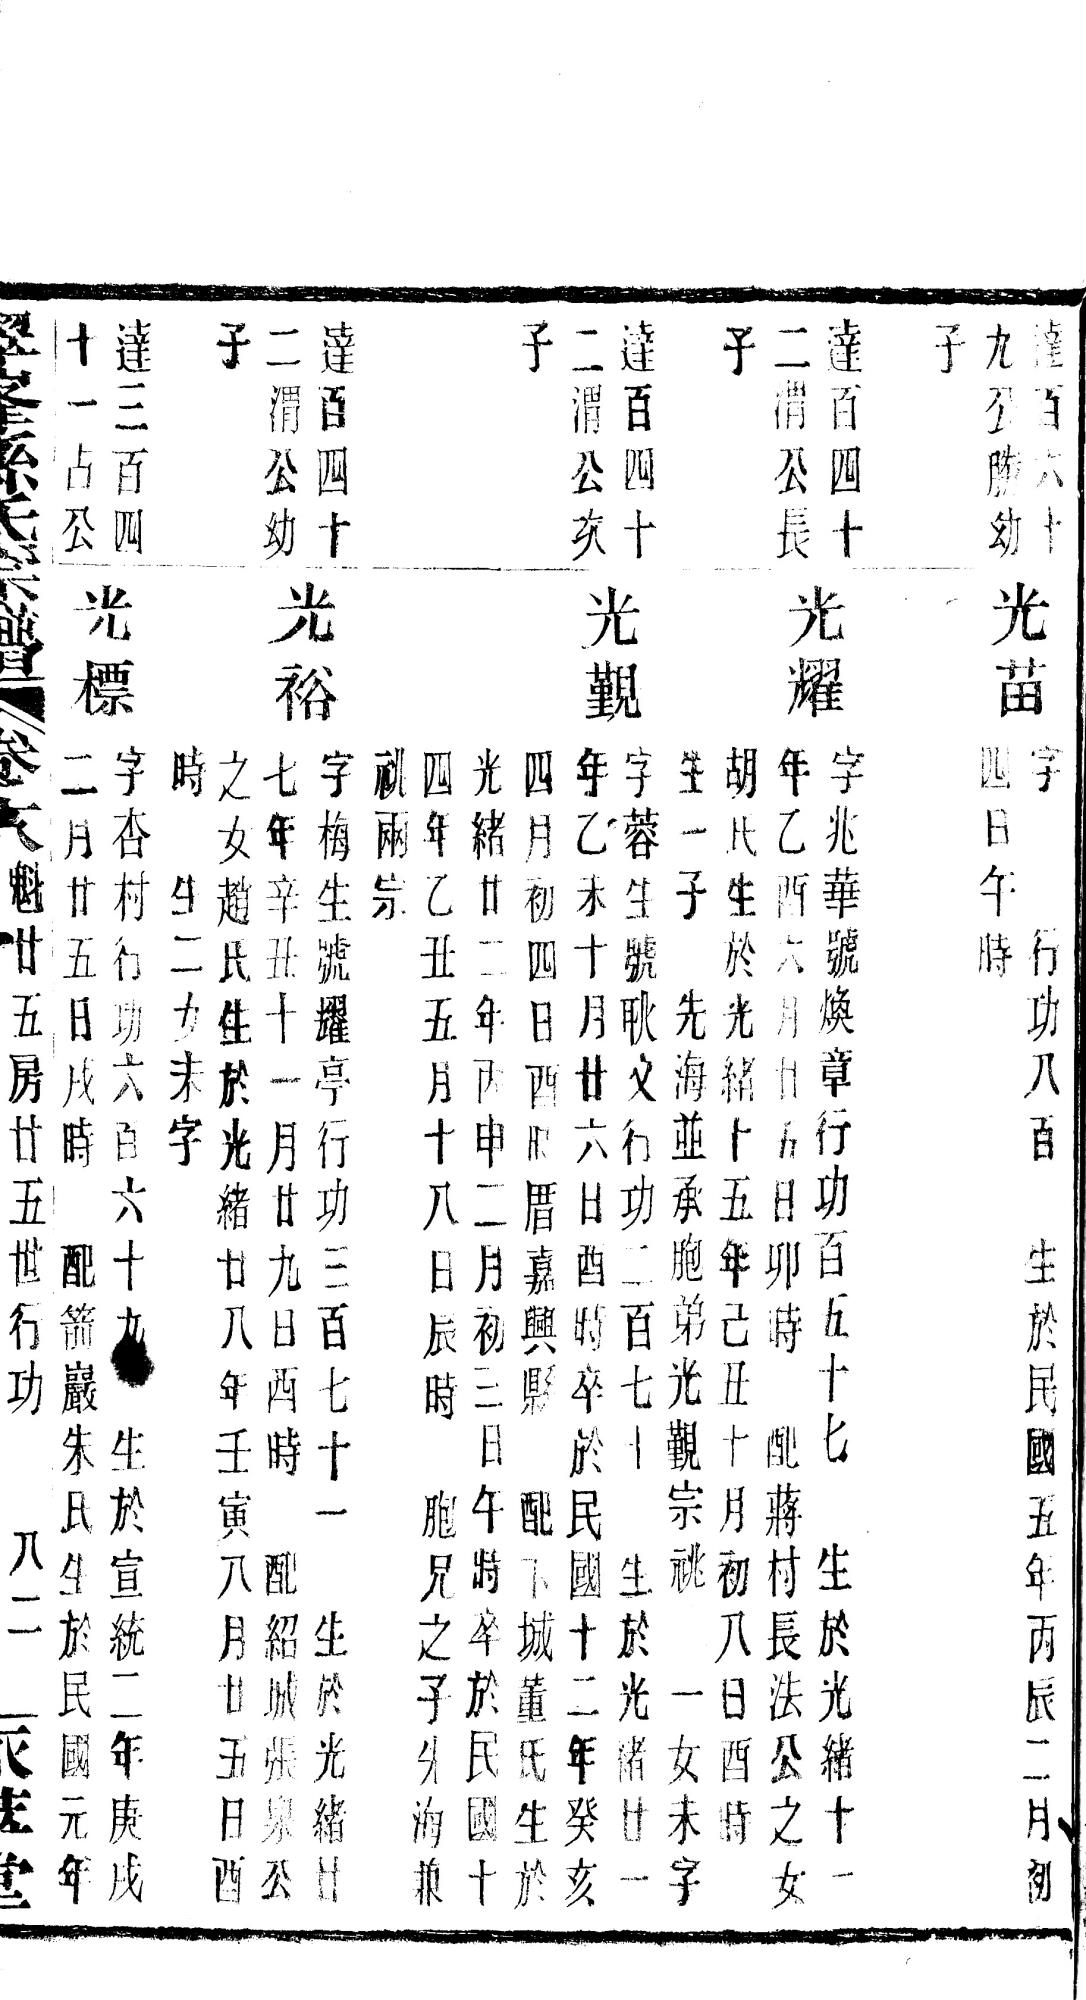 達百六十
九公勝幼
子
光苗
字　　行功八百　生於民國五年丙辰二月初
四日午時
達百四十
二渭公長
子
光耀
字兆華號煥章行功百五十七　生於光緒十一
年乙酉六月廿五日卯時　配蔣村長法公之女
胡氏生於光緒十五年己丑十月初八日酉時
生一子　先海並承胞弟光觀宗祧　一女未字
達百四十
二渭公次
子
光觀
字蓉生號耿文行功二百七十　生於光緒廿一
年乙未十月廿六日酉時卒於民國十二年癸亥
四月初四日酉時厝嘉興縣　配下城董氏生於
光緒廿二年丙申二月初三日午時卒於民國十
四年乙丑五月十八日辰時　胞兄之子先海兼
祧兩宗
達百四十
二渭公幼
子
光裕
字梅生號耀亭行功三百七十一　生於光緒廿
七年辛丑十一月廿九日酉時　配紹城張泉公
之女趙氏生於光緒廿八年壬寅八月廿五日酉
時　生二女未字
達三百四
十一占公
光標
字杏村行功六百六十九　生於宣統二年庚戌
二月廿五日戌時　配箭巖朱氏生於民國元年
孫氏宗譜　卷　魁廿五房廿五世行功　八二　堂